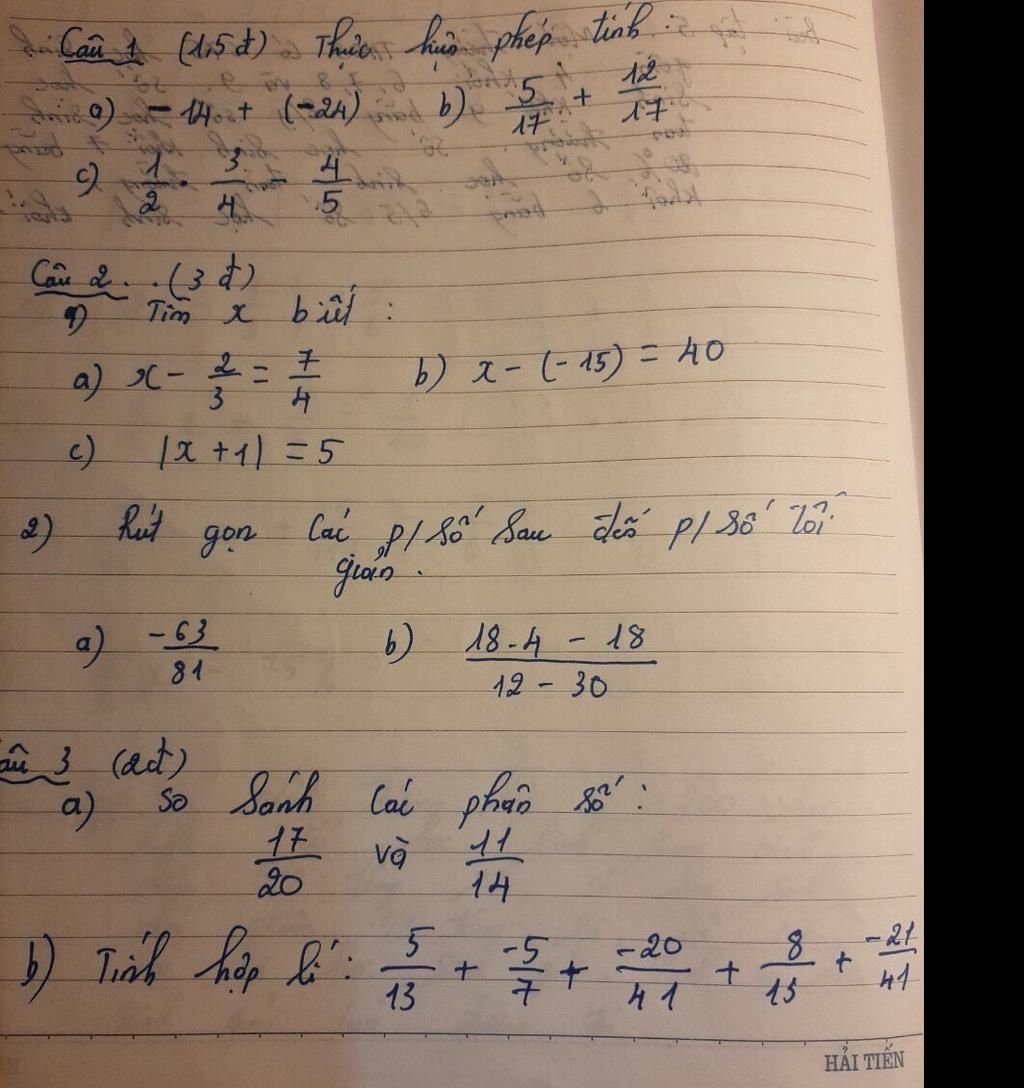 Câu 1 (1,5đ) Thực hiện phép tính:
a) -14 + (-24) b) 5/17 + 12/17
c) 1/2 . 3/4 - 4/5
Câu 2 . . (3 đ)
1) Tìm x biết :
a) x - 2/3 = 7/4 b) x - (-15) = 40
c) |x + 1| = 5
2) Rút gọn các p/số sau đến p/số tối
giản .
a) -63/81 b) (18.4 - 18)/(12 - 30)
Câu 3 (2đ)
a) So sánh các phân số :
17/20 và 11/14
b) Tính hợp lí : 5/13 + -5/7 + -20/41 + 8/13 + -21/41
HẢI TIẾN